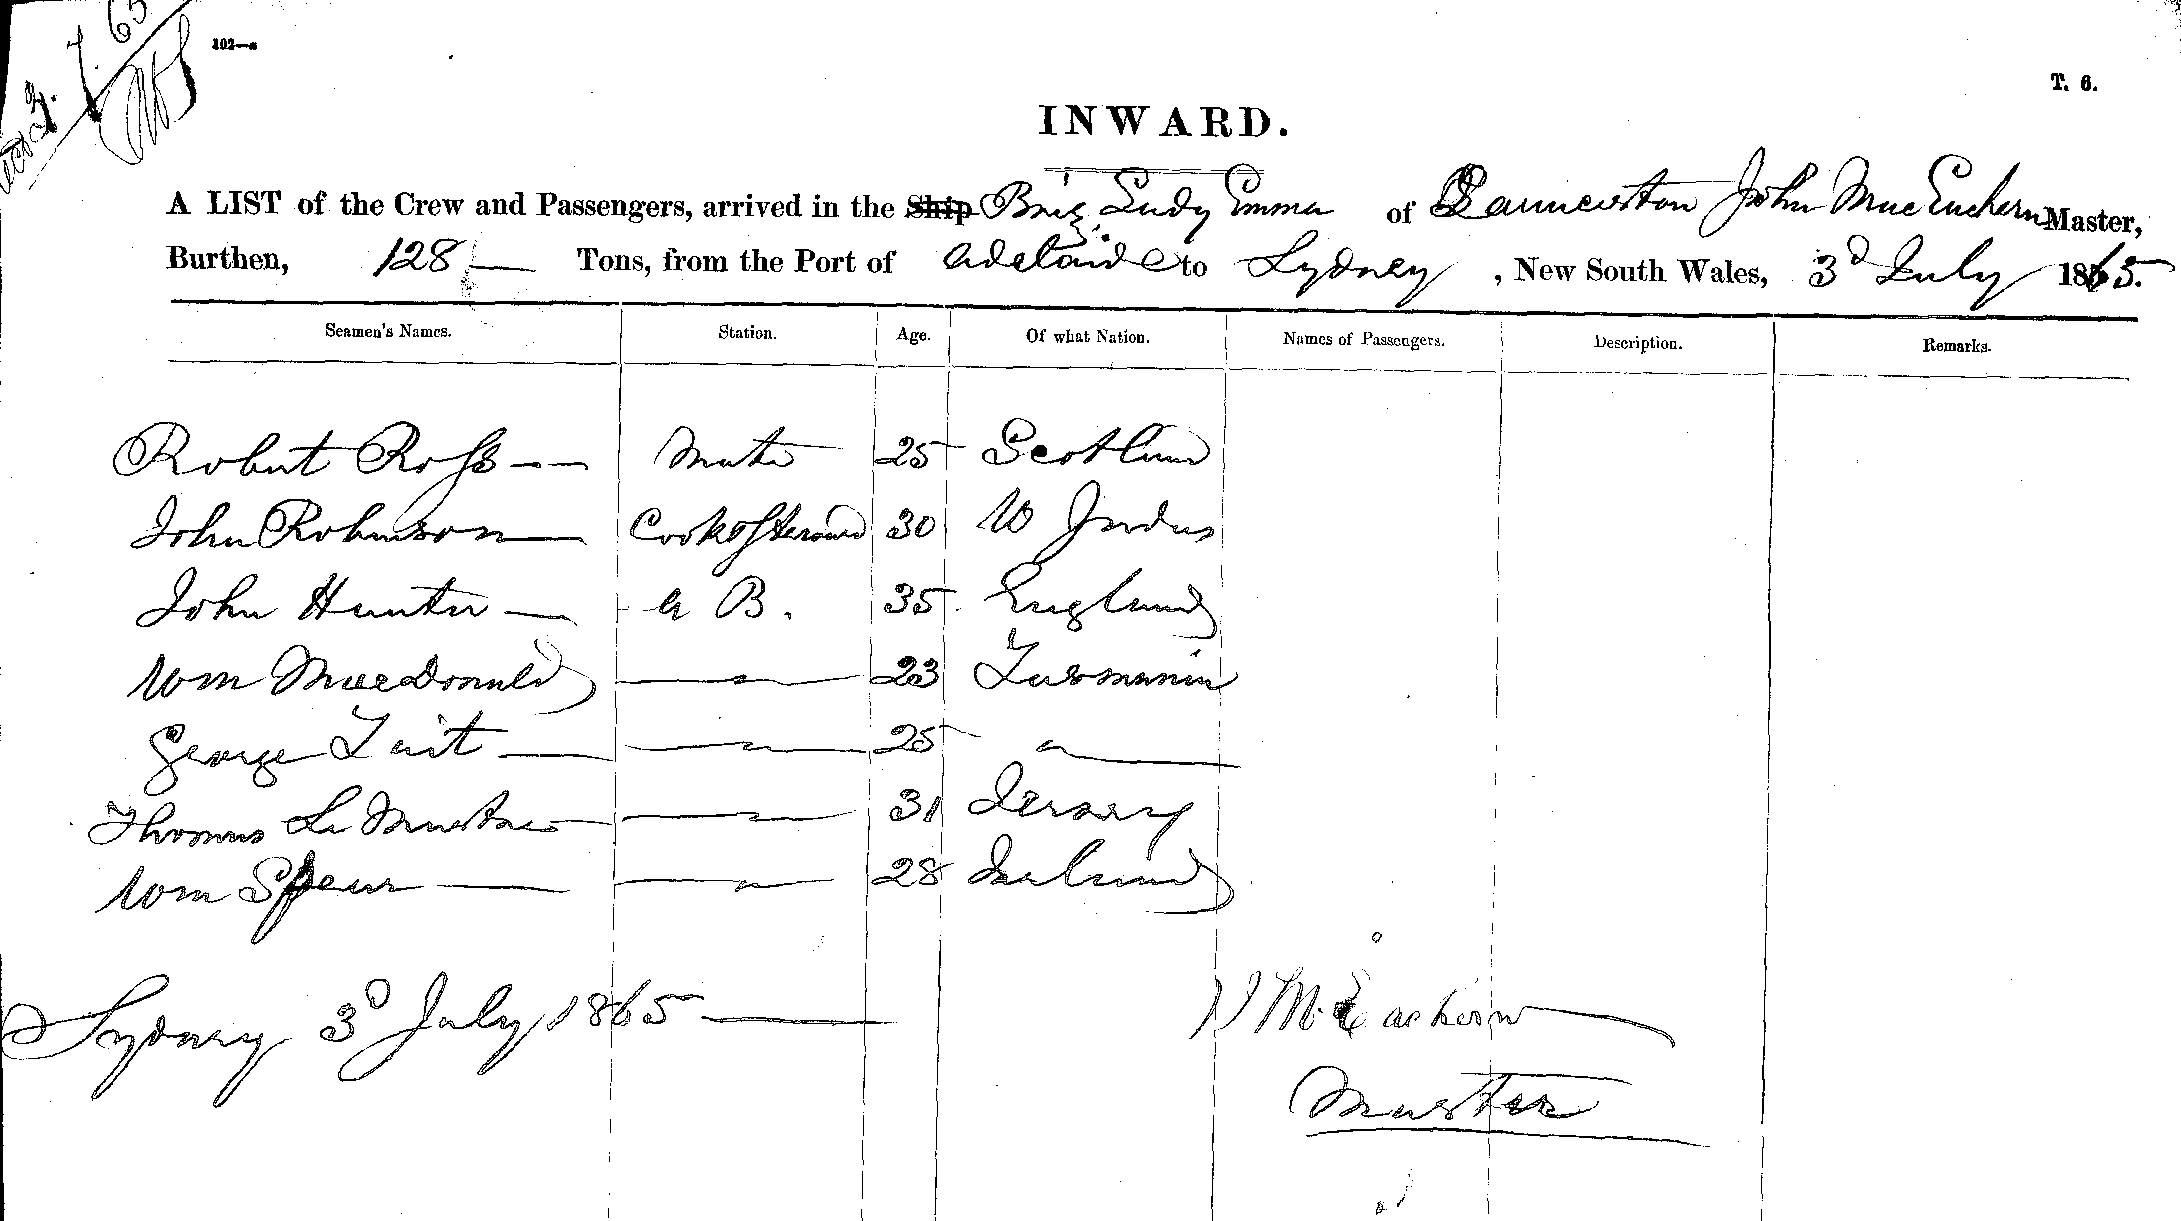 3. 7. 65
102—a
T. 6.
INWARD.
A LIST of the Crew and Passengers, arrived in the Ship Brig Lady Emma of Launceston John MacEachern Master,
Burthen, 128 Tons, from the Port of Adelaide to Sydney, New South Wales, 3d July 1865.
Seamen's Names. Station. Age. Of what Nation. Names of Passengers. Description. Remarks.
Robert Ross Mate 25 Scotland
John Robinson Cook & Steward 30 W Indies
John Hunter A B. 35 England
Wm MacDonald 〃 23 Tasmania
George Tait 〃 25 〃
Thomas Le 〃 31 Jersey
Wm Spear 〃 28 Ireland
Sydney 3d July 1865
McEachern
Master